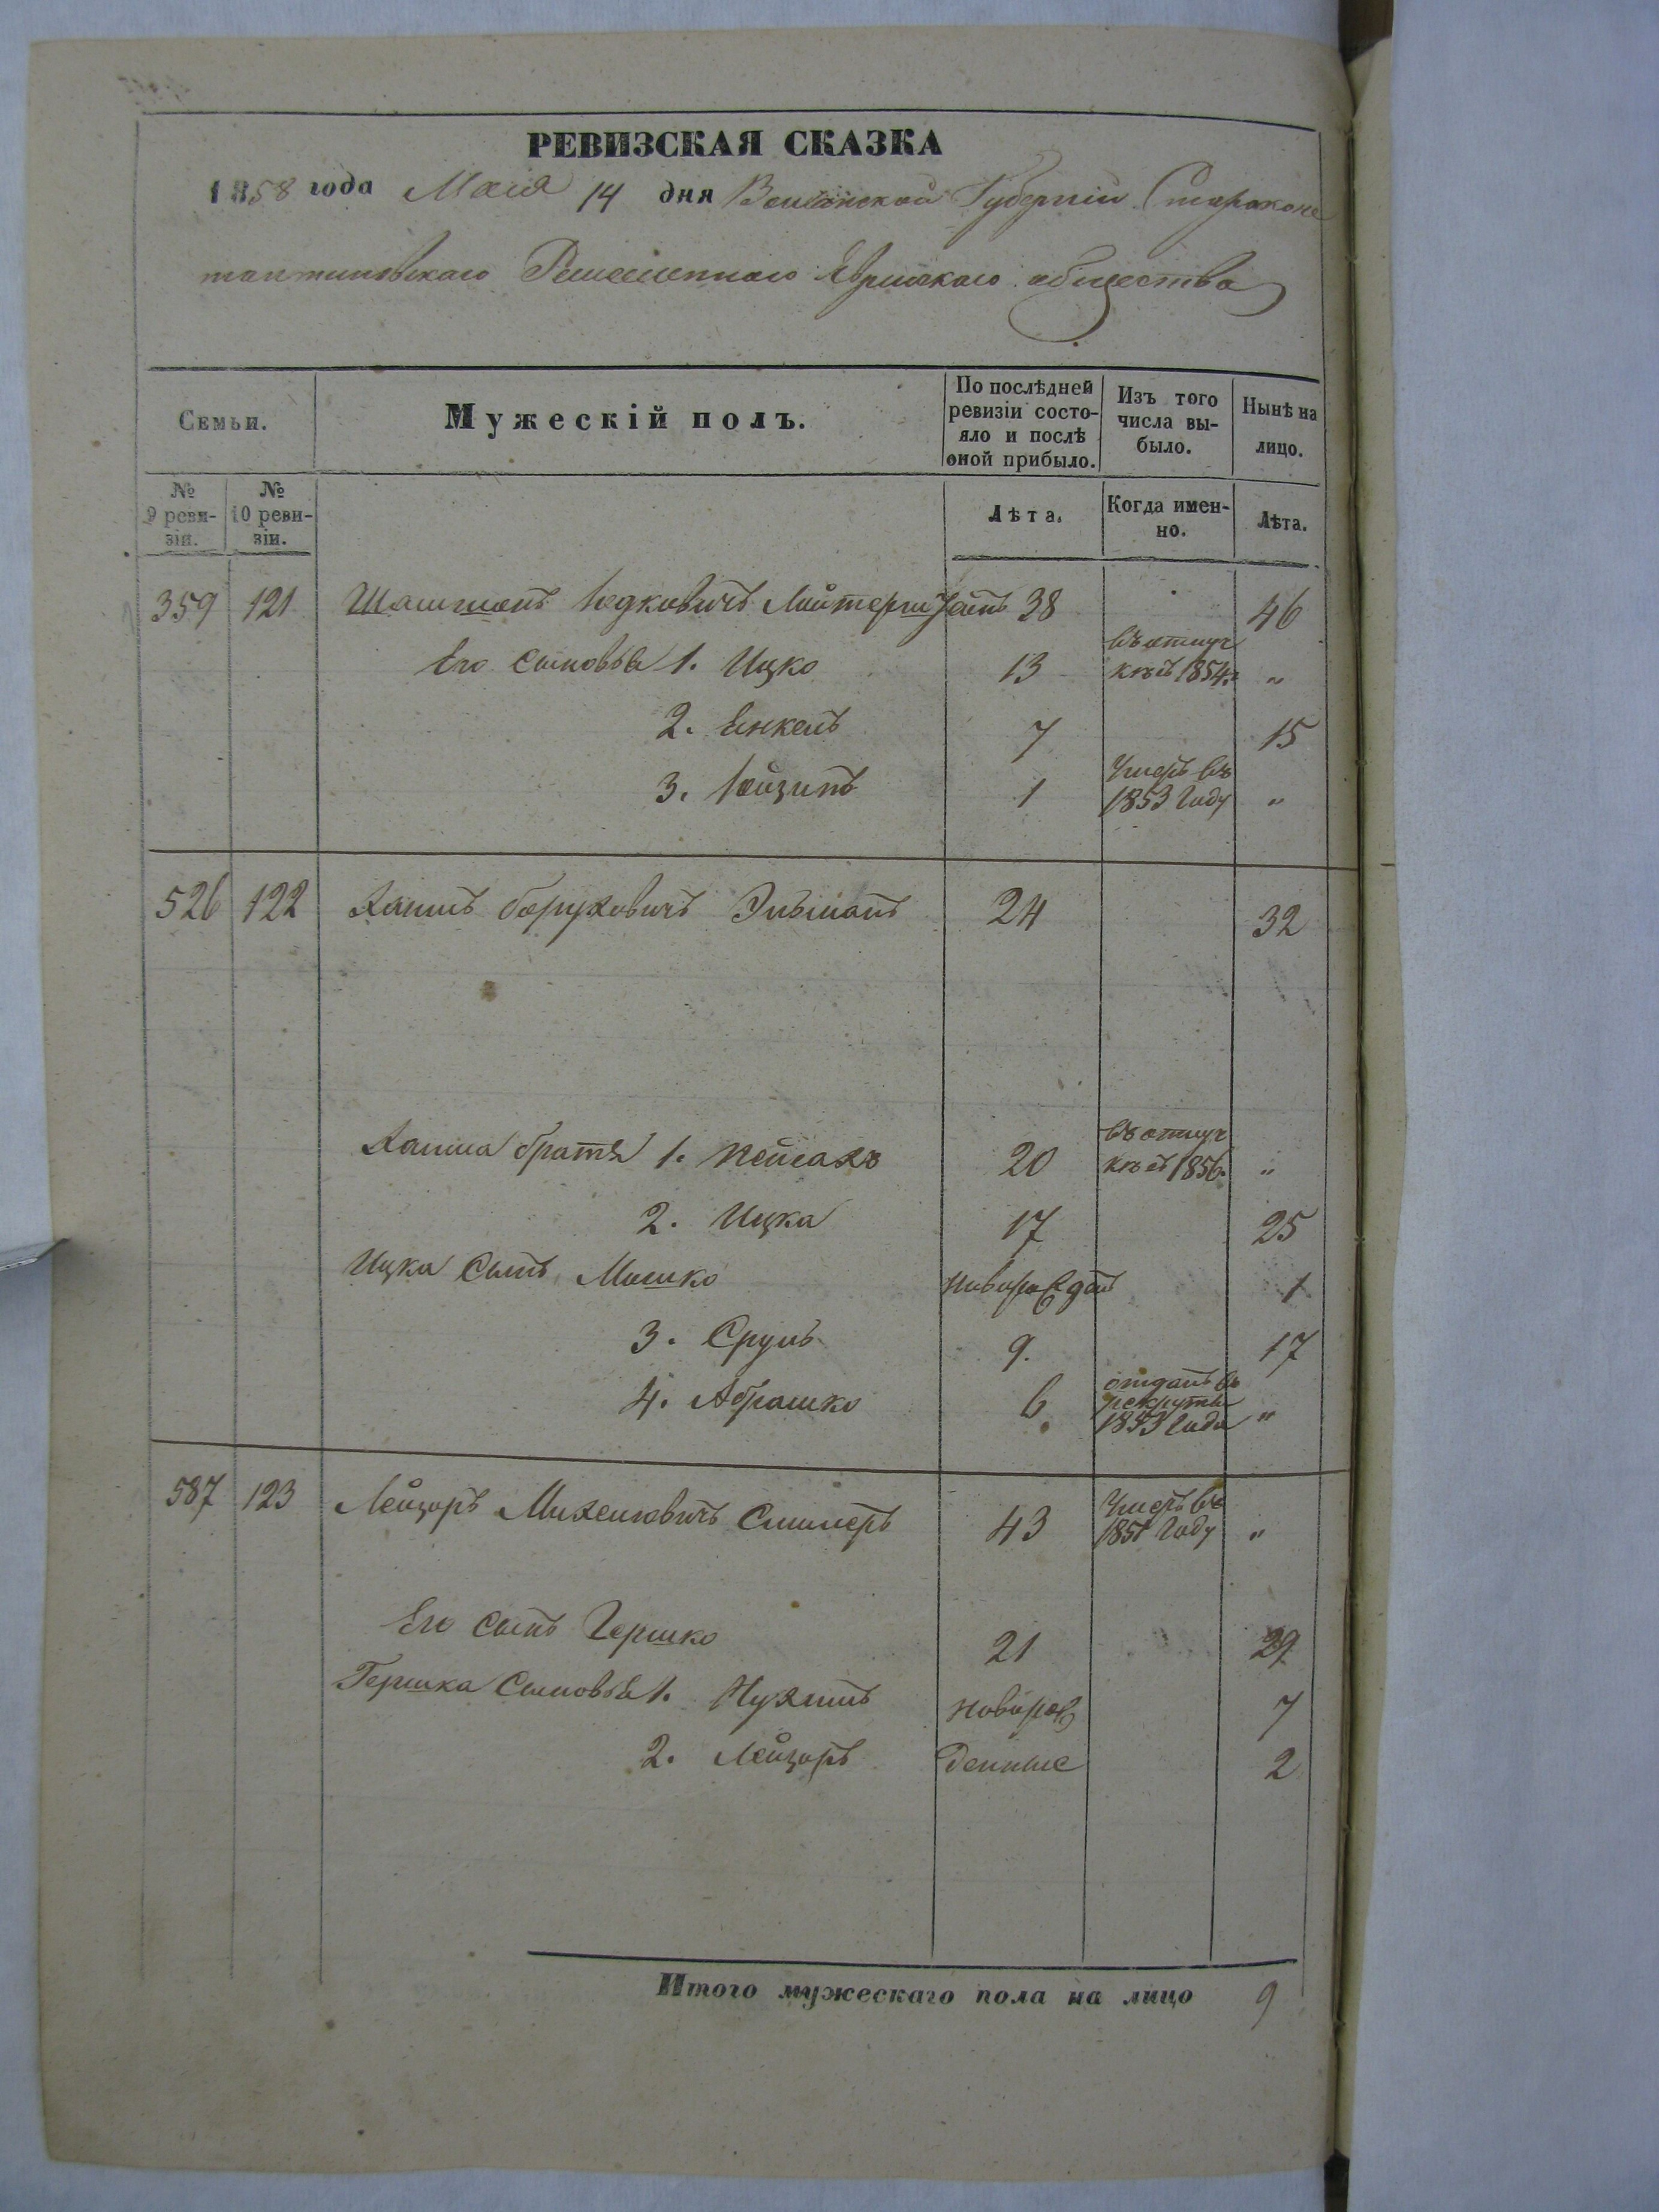 РЕВИЗСКАЯ СКАЗКА
1858 года Маія 14 дня Волынской Губерніи Старокон
тантиновскаго Ремесленнаго Еврейскаго общества
Семьи.
Мужескій полъ.
По послѣдней ревизіи состо-
яло и послѣ
оной прибыло.
Изъ того
числа вы-
было.
Нынѣ на
лицо.
№ 9 реви-
зіи.
№ 10 реви-
зіи.
Лѣта.
Когда имен-
но.
Лѣта.
359 121 Юдковичъ 38 46
Его сыновья 1. Ицко 13 въ отлуч
кѣ съ 1854. „
2. Енкель 7 15
3. 1 Умеръ въ
1853 Году „
526 122 Хаимъ Боруховичъ 24 32
Хаима братья 1. Пейсахъ 20 въ отлуч
кѣ съ 1856. „
2. Ицка 17 25
Ицка Сынъ Мошко новорожден 1
3. Сруль 9. 17
4. Абрашко 6. отданъ въ
рекруты
1853 Года „
587 123 Лейзоръ Михелювичъ 43 Умеръ въ
1851 Году „
Его Сынъ Гершко 21 29
Гершка Сыновья 1. Нухимъ новорож 7
2. Лейзоръ денные 2
Итого мужескаго пола на лицо 9